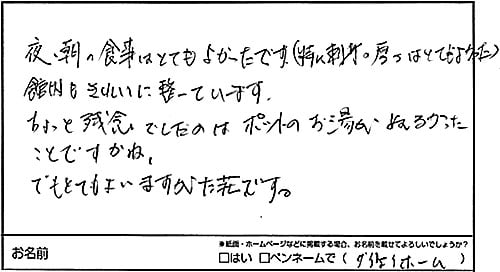 夜、朝の食事はとてもよかったです。(特に刺身の厚さはとてもよかった)
館内もきれいに整っています。
ちょっと残念でしたのはポットのお湯がぬるかった
ことですかね。
でもとてもよい
※紙面・ホームページなどに掲載する場合、お名前を載せてよろしいでしょうか?
お名前 □はい □ペンネームで( ホーム )